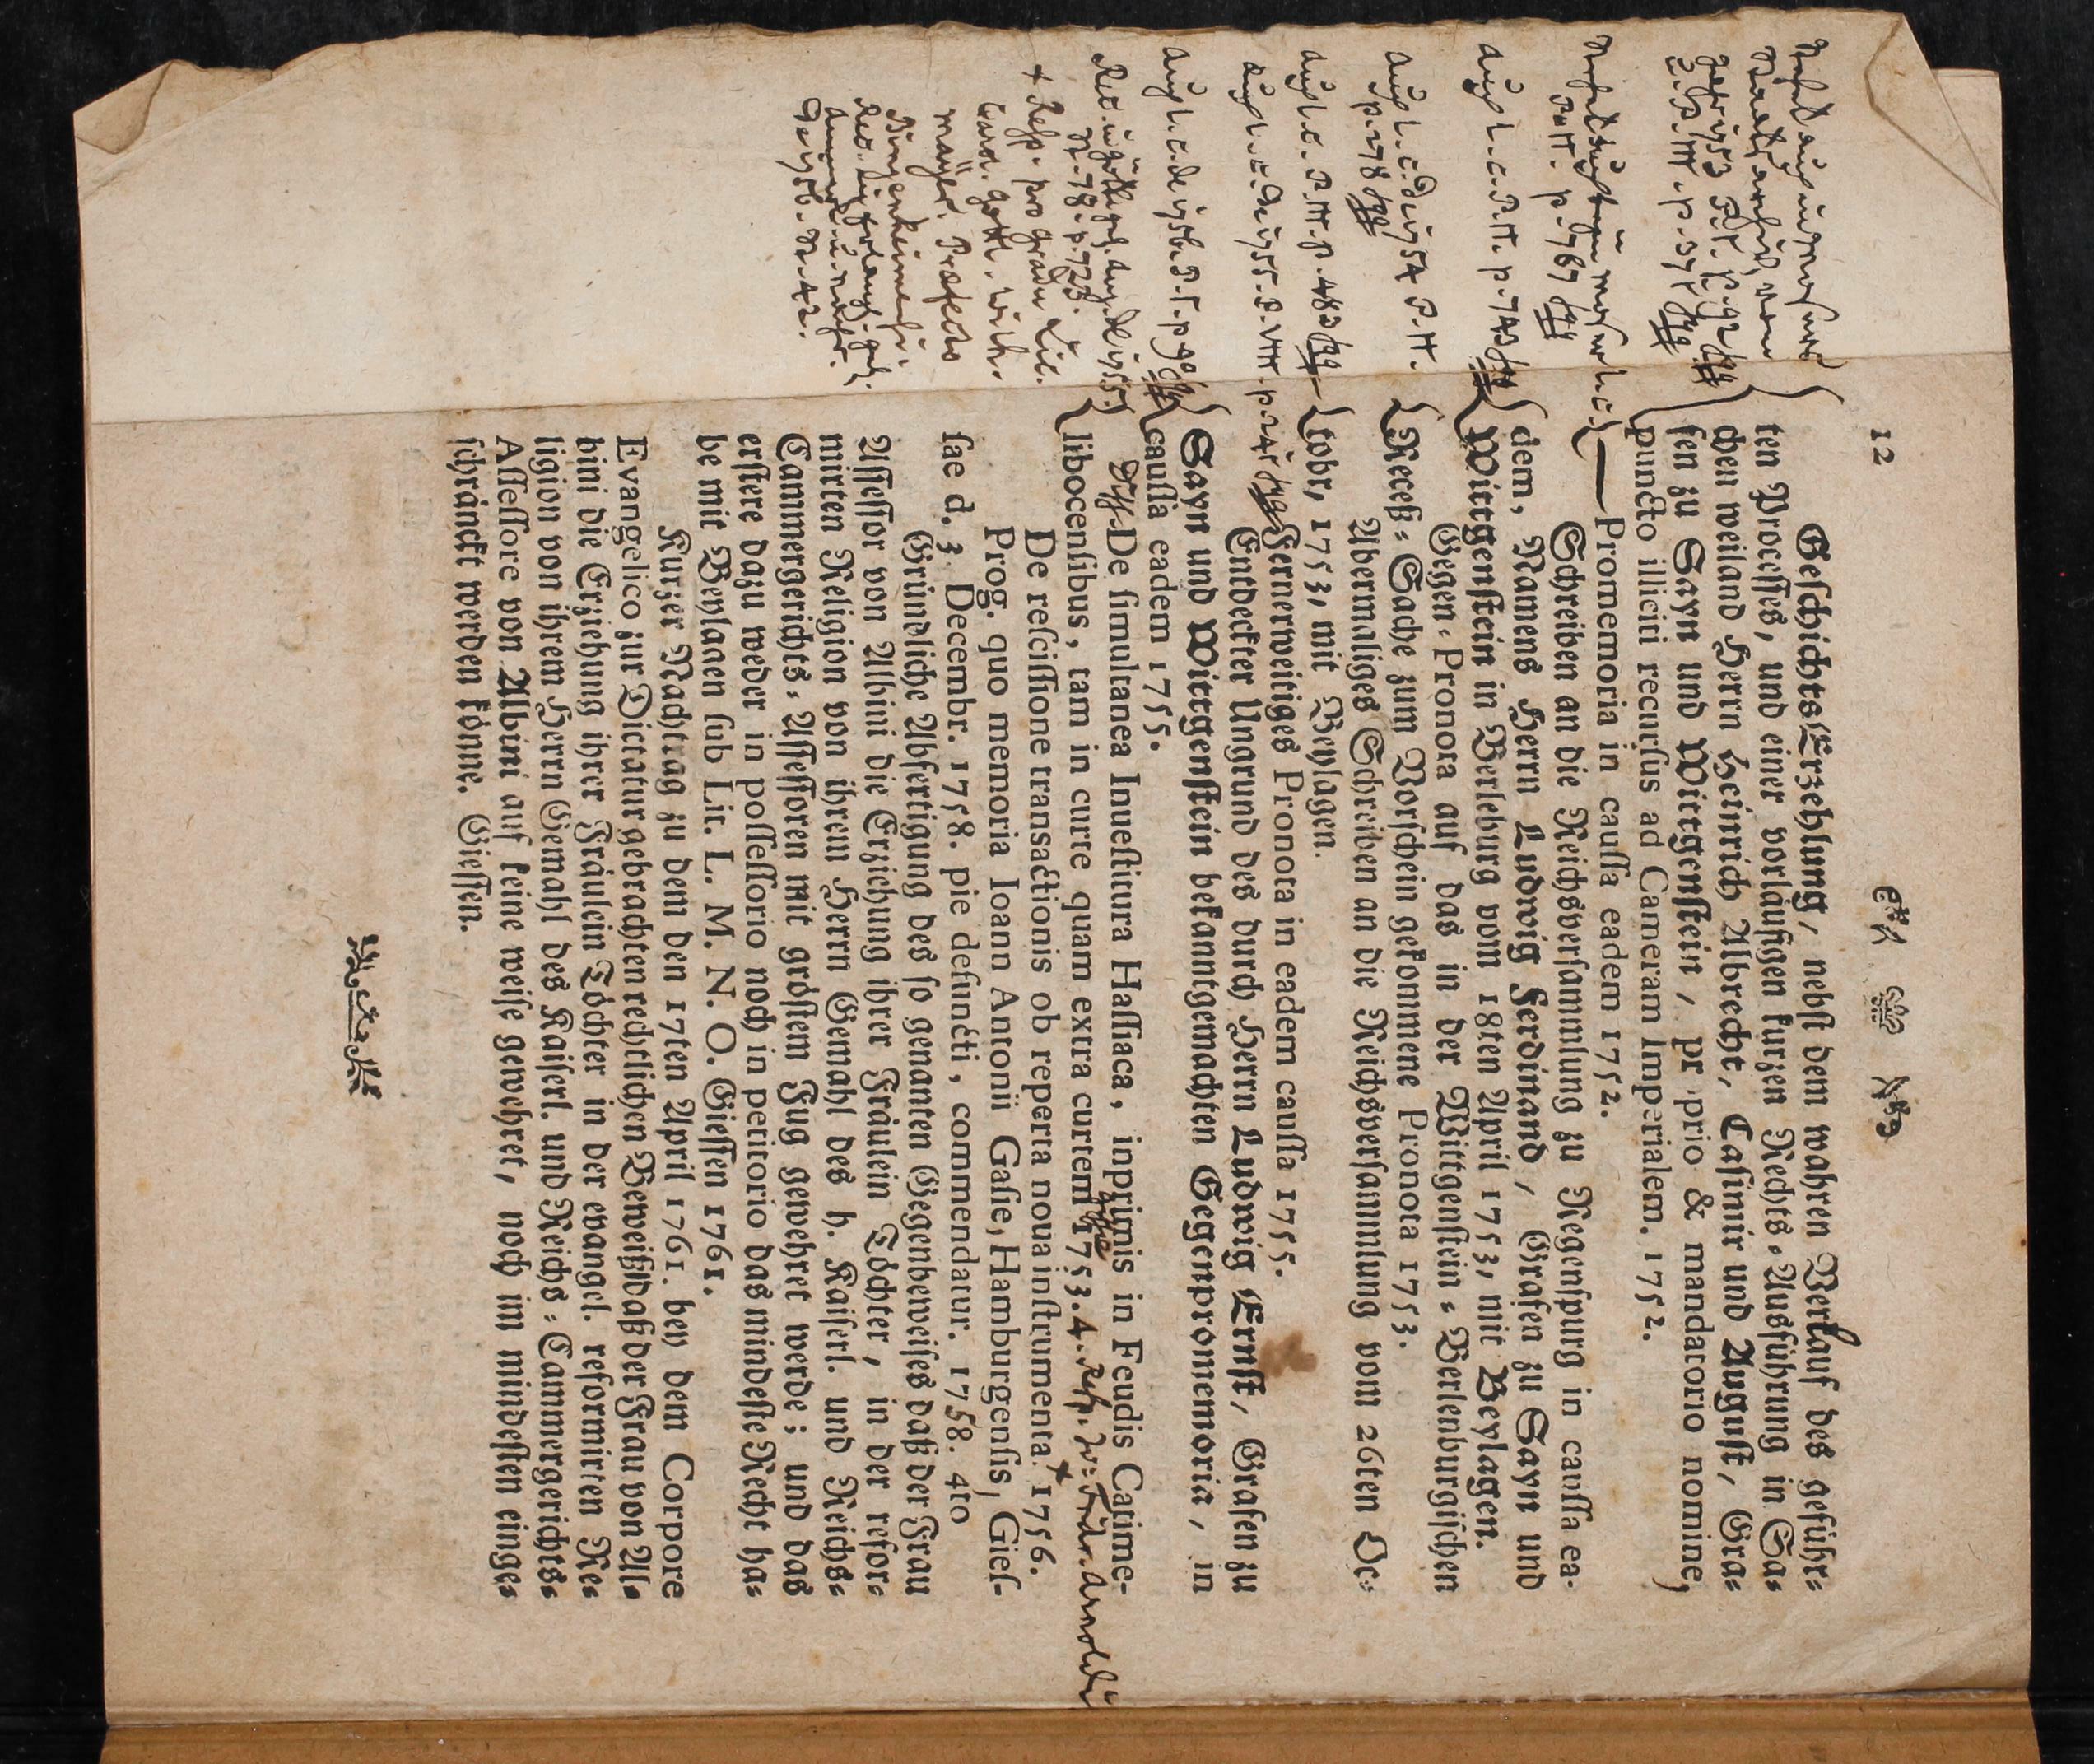 12
GeschichtsErzehlung, nebst dem wahren Verlauf des geführ-
ten Processes, und einer vorläufigen kurzen Rechts-Ausführung in Sa-
chen weiland Herrn Heinrich Albrecht, Casimir und August, Gra-
fen zu Sayn und Wittgenstein, pr prio & mandatorio nomine,
puncto illiciti recursus ad Cameram Imperialem. 1752.
Promemoria in caussa eadem 1752.
Schreiben an die Reichsversammlung zu Regenspurg in caussa ea-
dem, Namens Herrn Ludwig Ferdinand, Grafen zu Sayn und
Wittgenstein in Berleburg vom 18ten April 1753, mit Beylagen.
Gegen-Pronota auf das in der Wittgenstein-Berlenburgischen
Receß-Sache zum Vorschein gekommene Pronota 1753.
Abermaliges Schreiben an die Reichsversammlung vom 26ten Oc-
tobr, 1753, mit Beylagen.
Fernerweitiges Pronota in eadem caussa 1755.
Entdeckter Ungrund des durch Herrn Ludwig Ernst, Grafen zu
Sayn und Wittgenstein bekanntgemachten Gegenpromemoria, in
caussa eadem 1755.
Diss. De simultanea Inuestitura Hassiaca, inprimis in Feudis Catime-
libocensibus, tam in curte quam extra curtem 1753. 4. Resp. Arnoldi
De rescissione transactionis ob reperta noua instrumenta. + 1756.
Prog. quo memoria Ioann Antonii Gasie, Hamburgensis, Gies-
sae d. 3. Decembr. 1758. pie defuncti, commendatur. 1758. 4to
Gründliche Abfertigung des so genanten Gegenbeweises daß der Frau
Assessor von Albini die Erziehung ihrer Fräulein Töchter, in der refor-
mirten Religion von ihrem Herrn Gemahl des h. Kaiserl. und Reichs-
Cammergerichts-Assessoren mit gröstem Fug gewehret werde; und das
erstere dazu weder in possessorio noch in petitorio das mindeste Recht ha-
be mit Beylagen sub Lit. L. M. N. O. Giessen 1761.
Kurzer Nachtrag zu dem den 17ten April 1761. bey dem Corpore
Evangelico zur Dictatur gebrachten rechtlichen Beweiß daß der Frau von Al-
bini die Erziehung ihrer Fräulein Töchter in der evangel. reformirten Re-
ligion von ihrem Herrn Gemahl des Kaiserl. und Reichs-Cammergerichts-
Assessore von Albini auf keine weise gewehret, noch im mindesten einge-
schränckt werden könne. Giessen.
P. III. p. 371
P. II. p. 767
P. II. p. 743
1754 P. II.
p. 178
P. III. p. 483
1755. P. VIII. p. 245
de 1756. P. I. p. 90
N. 78. p. 723.
+ Resp. pro gradu Lic.
Präfecto
1756. N. 42.